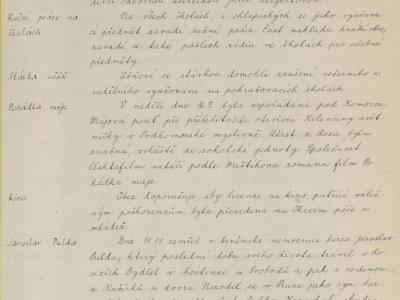 Ruční práce na
školách
Na všech školách, i chlapeckých, se jako vyučova-
cí předmět zavádí ruční práce. Část nákladu hradí obec,
zavádí se také poslech rádia ve školách pro učební
předměty.
Stávka učňů
Učňové se stávkou domohli zrušení večerního a
nedělního vyučování na pokračovacích školách.
Pohádka máje
V neděli dne 16.5. byla uspořádána pod Komorou
Májová pouť při příležitosti otevření Heleniny svět-
ničky v bodkomorské myslivně. Účast z Rosic byla
značná, zvláště ze sokolské jednoty. Společnost
Elektafilm natáčí podle Mrštíkova románu film Po-
hádka máje.
Kino
Obec doporučuje, aby licence na kino, patřící váleč-
ným poškozencům, byla převedena na Okresní péči o
mládež.
Jaroslav Pulda
Dne 11.11. zemřel v brněnské nemocnici herec Jaroslav
Pulda, který poslední dobu svého života trávil v Ro-
sicích. Bydlel v hostinci u Svobodů a pak s rodinou
u Kučírků u dvora. Narodil se v Praze jako syn